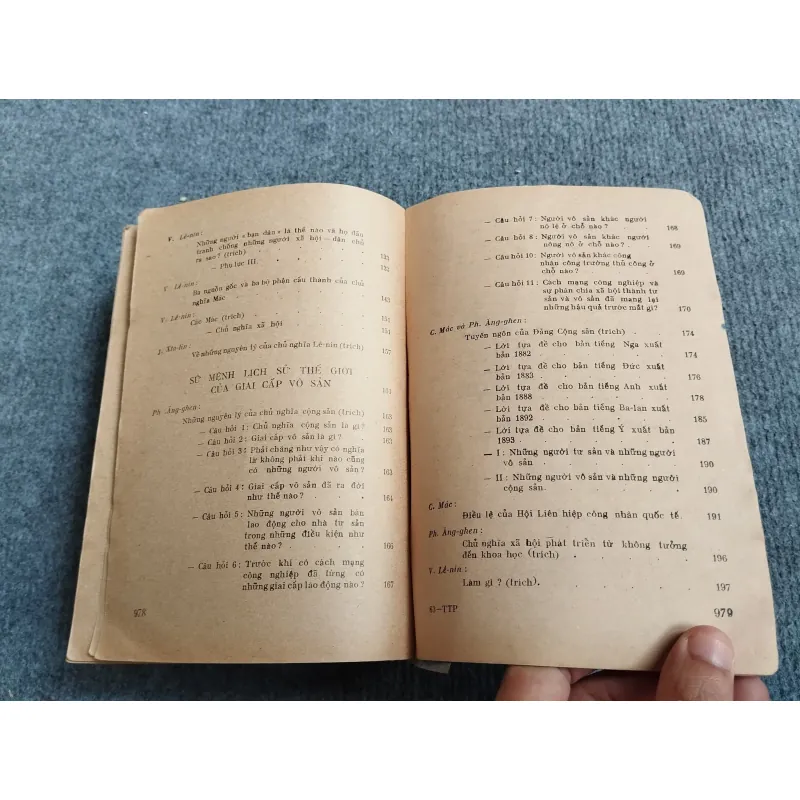 V. Lê-nin :
Những người « bạn dân » là thế nào và họ đấu
tranh chống những người xã hội — dân chủ
ra sao ? (trích) . . . . . 131
— Phụ lục III. . . . . . 132
V Lê-nin :
Ba nguồn gốc và ba bộ phận cấu thành của chủ
nghĩa Mác . . . . . . 143
V. Lê-nin :
Các Mác (trích) . . . . . 151
— Chủ nghĩa xã hội . . . . 151
J. Xta-lin :
Về những nguyên lý của chủ nghĩa Lê-nin (trích) 157
SỨ MỆNH LỊCH SỬ THẾ GIỚI
CỦA GIAI CẤP VÔ SẢN
Ph. Ăng-ghen :
Những nguyên lý của chủ nghĩa cộng sản (trích) 163
— Câu hỏi 1 : Chủ nghĩa cộng sản là gì ? 163
— Câu hỏi 2 : Giai cấp vô sản là gì ? . 163
— Câu hỏi 3 : Phải chăng như vậy có nghĩa
là không phải khi nào cũng
có những người vô sản ? 163
— Câu hỏi 4 : Giai cấp vô sản đã ra đời
như thế nào ? . . . . 164
— Câu hỏi 5 : Những người vô sản bán
lao động cho nhà tư sản
trong những điều kiện như
thế nào ? . . . . 166
— Câu hỏi 6 : Trước khi có cách mạng
công nghiệp đã từng có
những giai cấp lao động nào ? 167
978
— Câu hỏi 7 : Người vô sản khác người
nô lệ ở chỗ nào ? . . . 168
— Câu hỏi 8 : Người vô sản khác người
nông nô ở chỗ nào ? . . 169
— Câu hỏi 10 : Người vô sản khác công
nhân công trường thủ công ở
chỗ nào ? . . . . 169
— Câu hỏi 11 : Cách mạng công nghiệp và
sự phân chia xã hội thành tư
sản và vô sản đã mang lại
những hậu quả trước mắt gì ? 170
C. Mác và Ph. Ăng-ghen :
Tuyên ngôn của Đảng Cộng sản (trích) . 174
— Lời tựa đề cho bản tiếng Nga xuất
bản 1882 . . . . . 174
— Lời tựa đề cho bản tiếng Đức xuất
bản 1883 . . . . . 176
— Lời tựa đề cho bản tiếng Anh xuất
bản 1888 . . . . . 178
— Lời tựa đề cho bản tiếng Ba-lan xuất
bản 1892 . . . . . 185
— Lời tựa đề cho bản tiếng Ý xuất bản
1893 . . . . . . 187
— I : Những người tư sản và những người
vô sản . . . . . 190
— II : Những người vô sản và những người
cộng sản. . . . . 190
C. Mác :
Điều lệ của Hội Liên hiệp công nhân quốc tế. 191
Ph. Ăng-ghen :
Chủ nghĩa xã hội phát triển từ không tưởng
đến khoa học (trích) . . . . 196
V. Lê-nin :
Làm gì ? (trích). . . . . 197
61—TTP
979